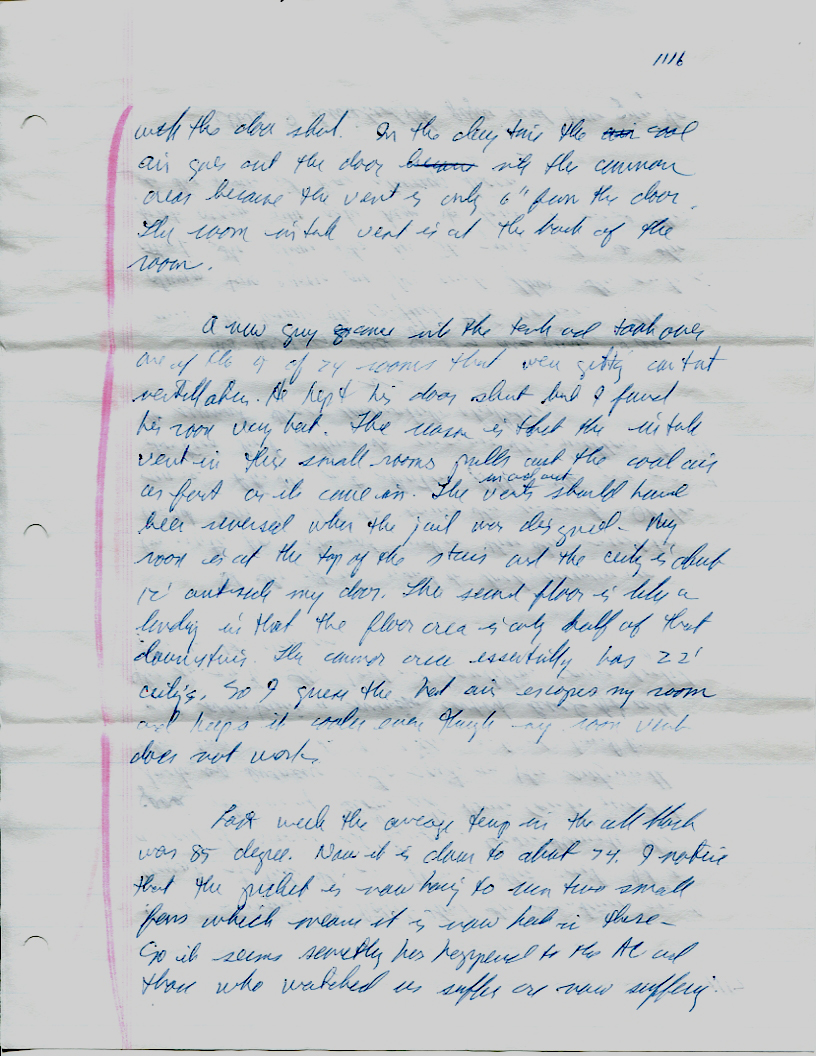 1116
with the door shut. In the day time the air cool
air goes out the door because into the common
areas because the vent is only 6" from the door.
The room intake vent is at the back of the
room.
A new guy came into the tank and took over
one of the 9 of 24 rooms that were getting constant
ventillation. He kept his door shut but I found
his room very hot. The reason is that the intake
vent in these small rooms pulls out the cool air
as fast as it comes in. The vents should have
in and out
been reversed when the jail was designed. My
room is at the top of the stairs and the ceiling is about
12' outside my door. The second floor is like a
landing in that the floor area is only half of that
downstairs. The common area essentially has 22'
ceilings. So I guess the hot air escapes my room
and keeps it cooler even though my room vent
does not work.
Last week the average temp in the cell block
was 85 degree. Now it is down to about 74. I notice
that the picket is now having to run two small
fans which means it is now hot in there -
So it seems something has happened to the AC and
those who watched us suffer are now suffering.